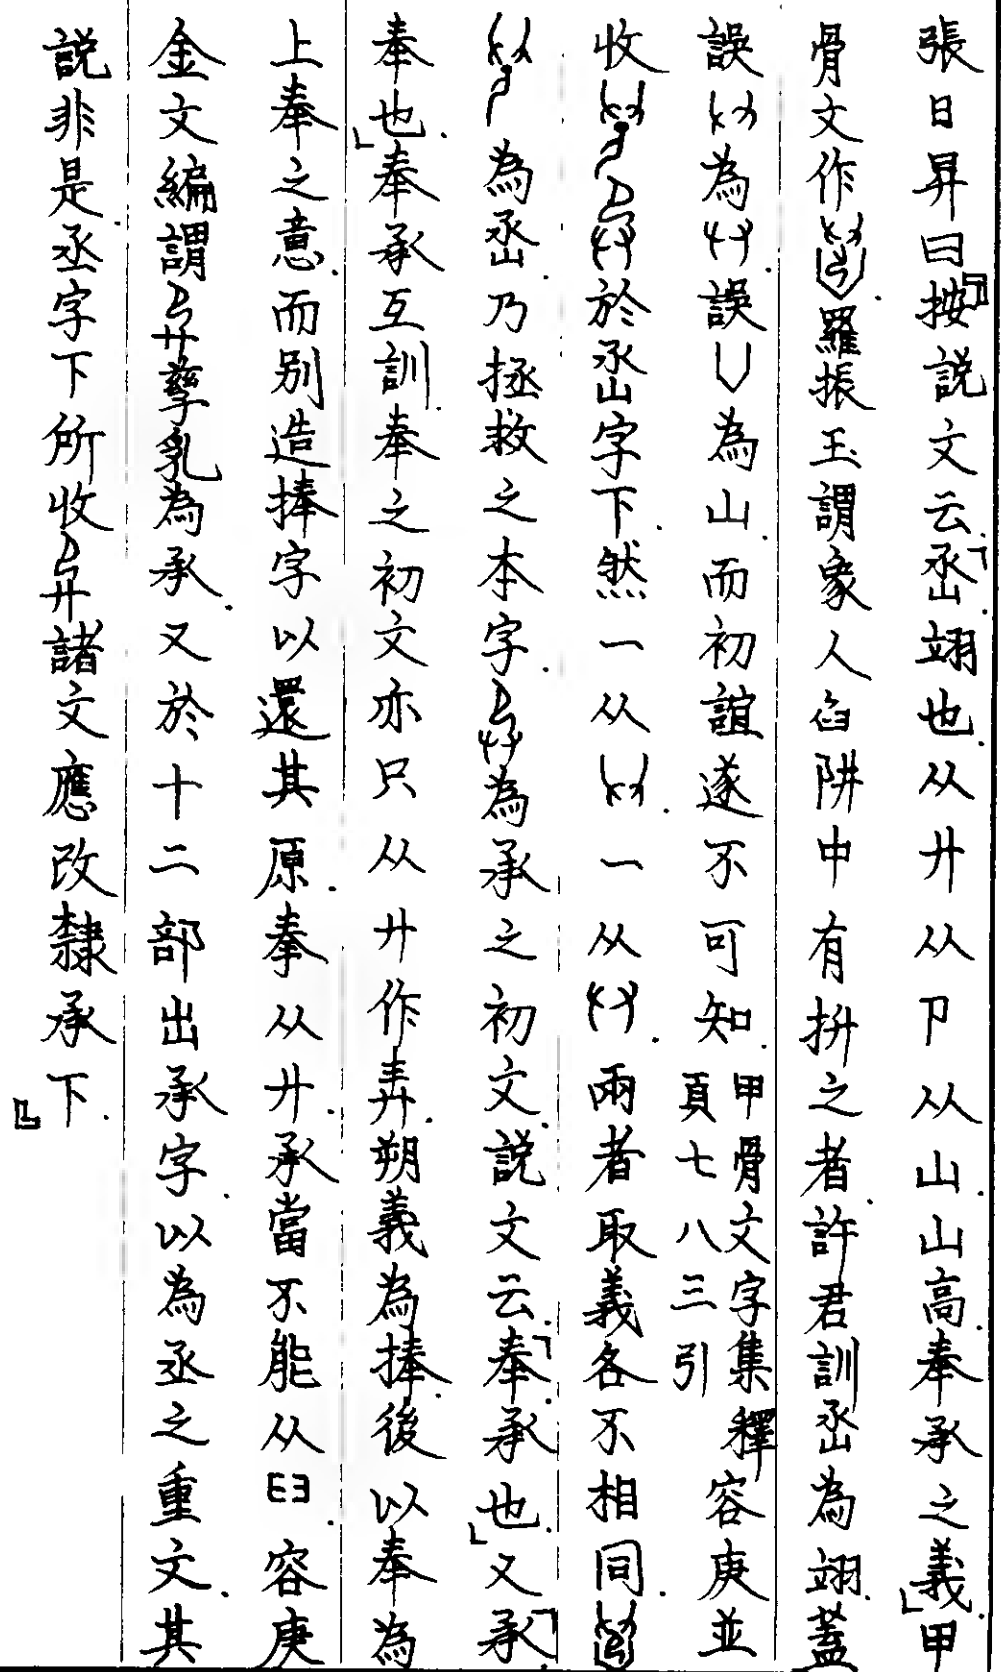 張日昇曰『按說文云「丞翊也.从廾从卩从山.山高.奉承之義.」甲
骨文作.羅振玉謂象人臽阱中有拚之者.許君訓丞為翊.蓋
誤為廾.誤凵為山.而初誼遂不可知.甲骨文字集釋頁七八三引容庚並
收於丞字下.然一从.一从.兩者取義各不相同.
為丞.乃拯救之本字.為承之初文.說文云.「奉.承也.」又「承.
奉也.」奉承互訓.奉之初文亦只从廾作弄.朔義為捧.後以奉為
上奉之意.而別造捧字以還其原.奉从廾.承當不能从𦥑.容庚
金文編謂孳乳為承.又於十二部出承字.以為丞之重文.其
說非是.丞字下所收諸文應改隸承下.』